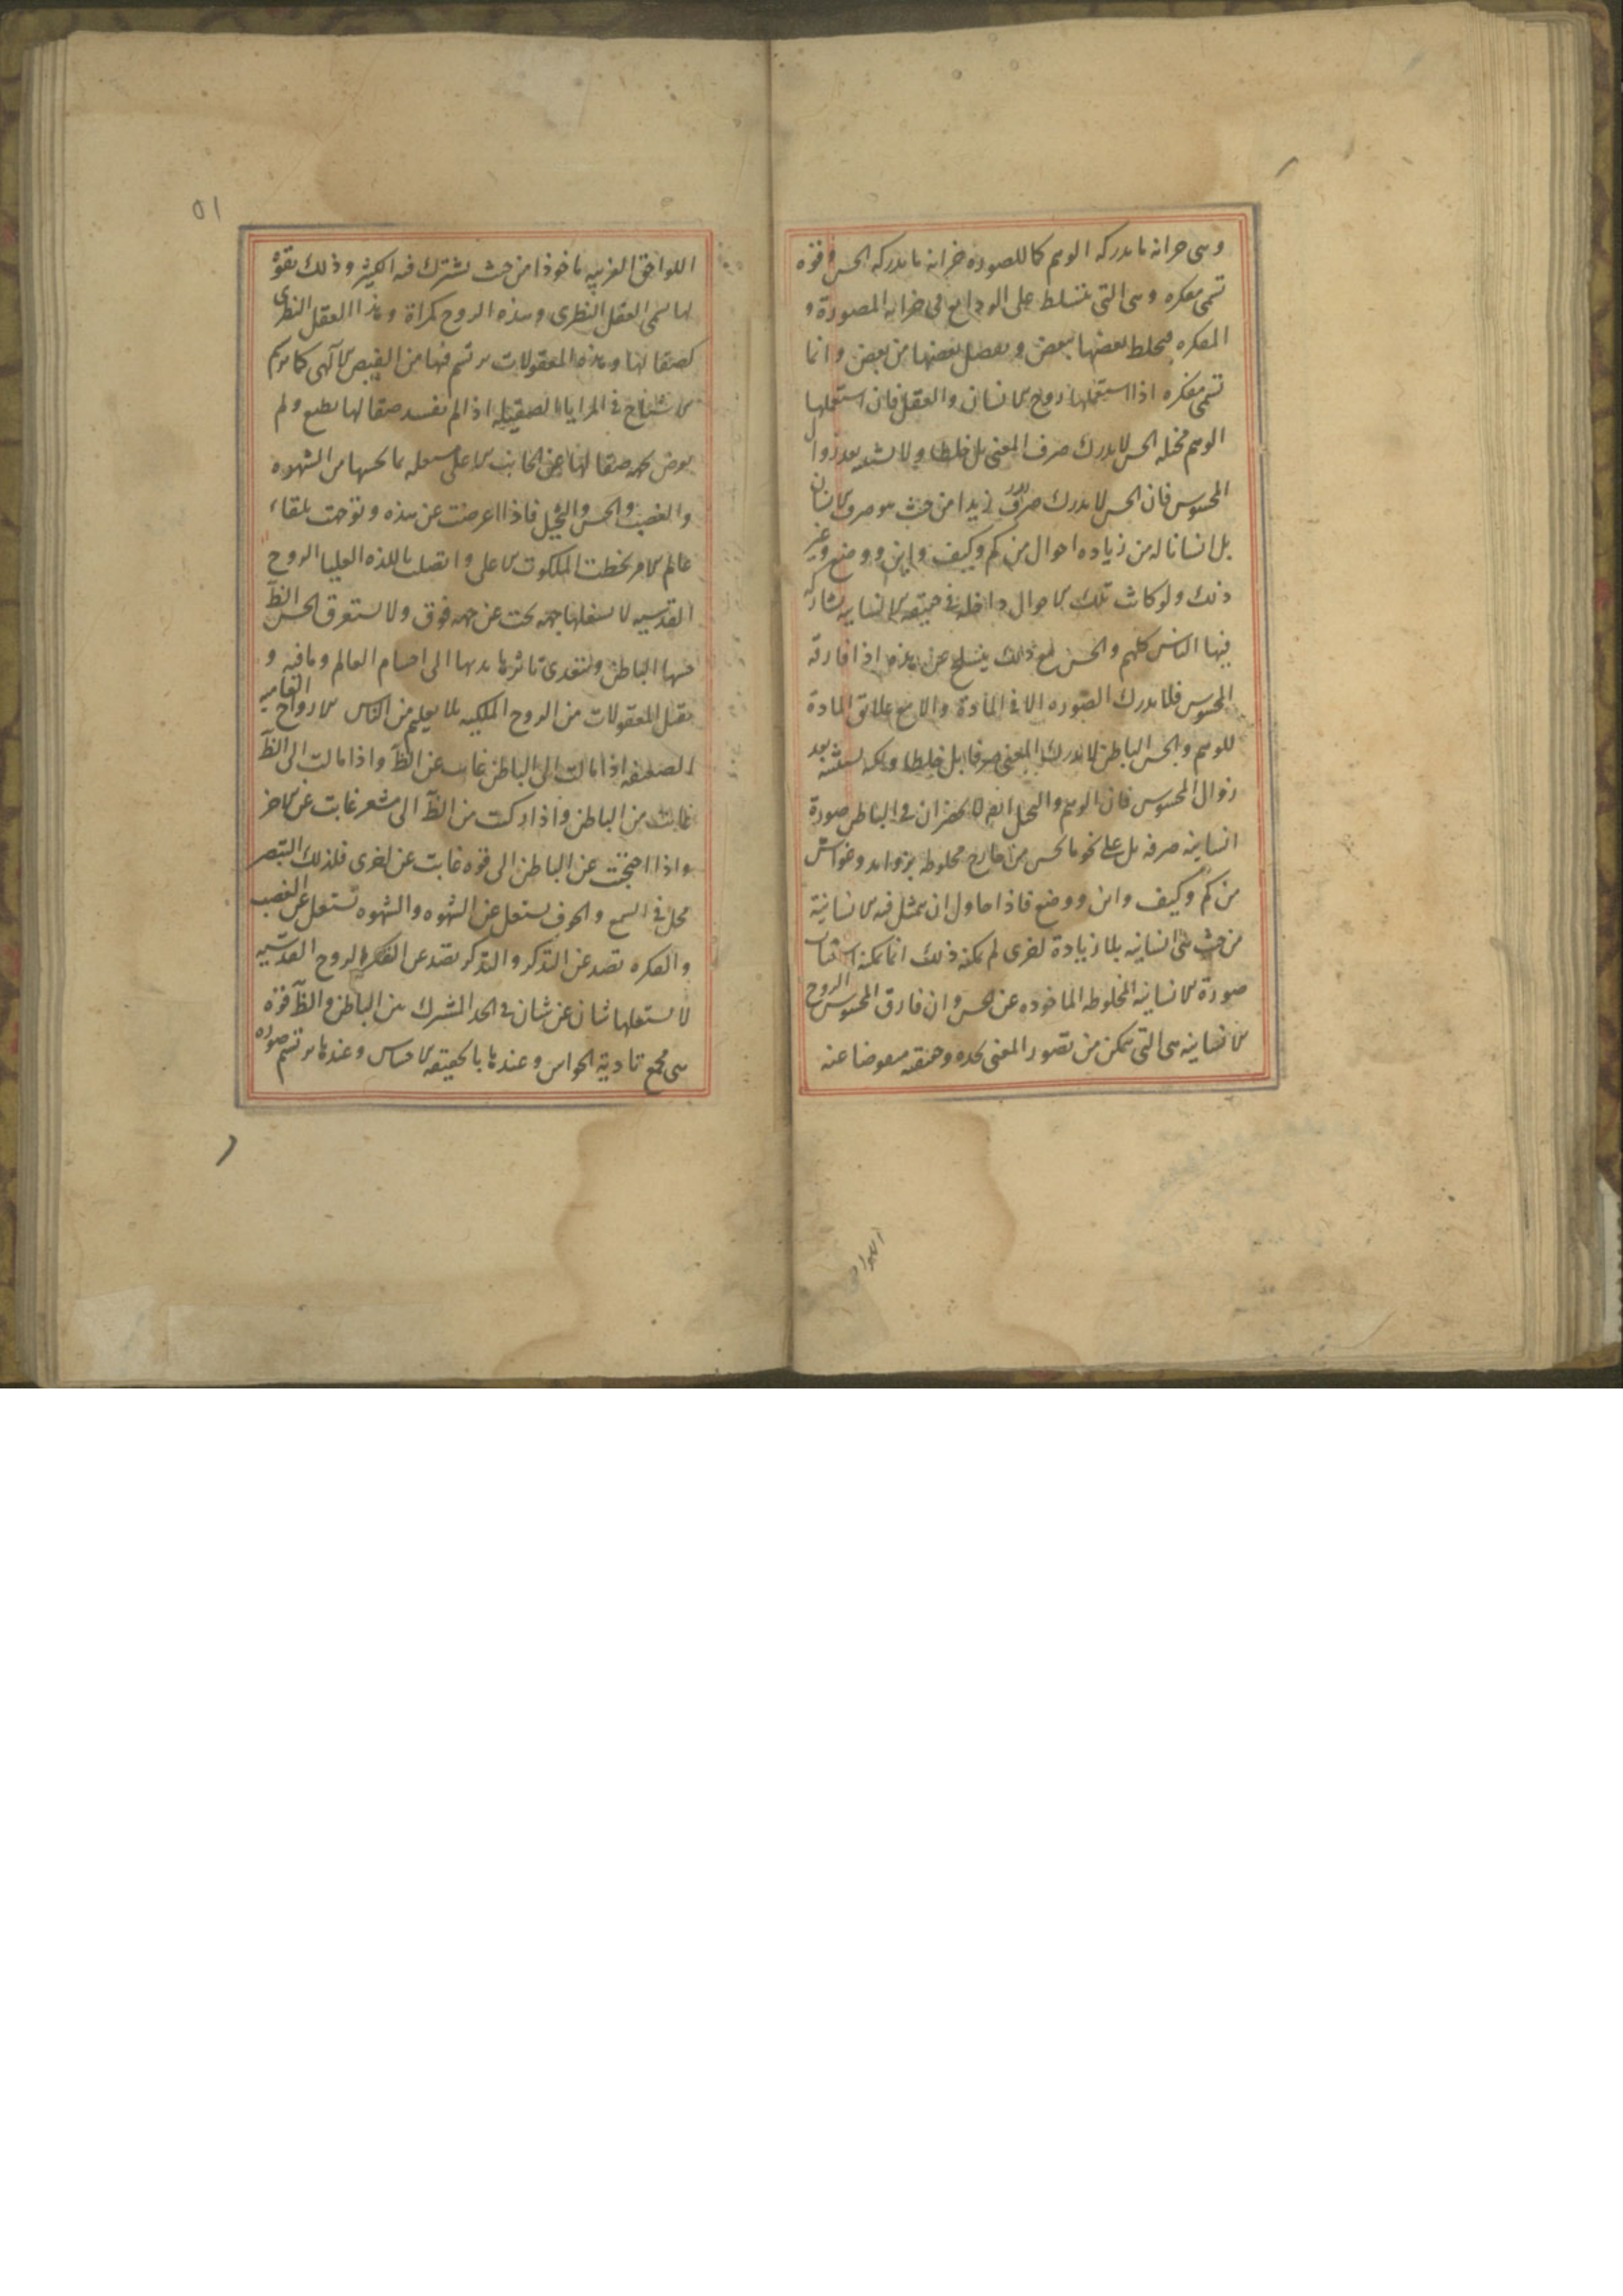 وهى خزانة ما يدركه الوهم كما للصورة خزانة ما يدركه الحس وقوة
تسمى مفكرة وهى التى تتسلط على الودايع فى خزانة المصورة و
المفكرة فيخلط بعضها ببعض ويفصل بعضها من بعض وانما
تسمى مفكرة اذا استعملها روح الانسان والعقل فان استعملها
الوهم مخيله الحس لا يدرك صرف المعنى بل خلطا ولا يستثبته بعد زوال
المحسوس فان الحس لا يدرك زيدا من حيث هو صرف الانسان
بل انسانا له من زيادة احوال من كم وكيف واين ووضع وغير
ذلك ولو كانت تلك الاحوال داخله فى حقيقة الانسانيه لشاركه
فيها الناس كلهم والحس مع ذلك ينسلخ عن هذه اذا فارقه
المحسوس فلا يدرك الصوره الا فى المادة والا مع علائق المادة
للوهم والحس الباطن لا يدرك المعنى صرفا بل خلطا ولكنه يستثبته بعد
زوال المحسوس فان الوهم والتخيل ايضا لا يحضران فى الباطن صورة
انسانيه صرفه بل على نحو ما يحس من خارج مخلوطه بزوايد وغواش
من كم وكيف واين ووضع فاذا حاول ان يتمثل فيه الانسانية
من حيث هى انسانيه بلا زيادة اخرى لم يمكنه ذلك انما يمكنه استثبات
صورة الانسانيه المخلوطه الماخوذه عن الحس وان فارق المحسوس الروح
الانسانيه هى التى تتمكن من تصور المعنى بحده وحقيقته منفوضا عنه
اللواحق
٥١
اللواحق الغريبه ماخوذا من حيث يشترك فيه الكثير وذلك بقوة
لها تسمى العقل النظرى وهذه الروح كمرآة وهذا العقل النظرى
كصقالها وهذه المعقولات ترتسم فيها من الفيض الالهى كما ترتسم
الاشباح فى المرايا الصقيله اذا لم يفسد صقالها بطبع ولم
يعرض بجهة صقالها عن الجانب الاعلى شغله بما تحتها من الشهوه
والغضب والحس والتخيل فاذا اعرضت عن هذه وتوجهت تلقاء
عالم الامر لحظت الملكوت الاعلى واتصلت باللذه العليا الروح
القدسيه لا يشغلها جهة تحت عن جهة فوق ولا يستغرق الحس الظ
حسها الباطن ويتعدى تاثيرها بدنها الى اجسام العالم وما فيه و
تقبل المعقولات من الروح الملكيه بلا تعليم من الناس الارواح العاميه
الضعيفه اذا مالت الى الباطن غابت عن الظ واذا مالت الى الظ
غابت من الباطن واذا ركنت من الظ الى مشعر غابت عن الاخر
واذا اجنحت عن الباطن الى قوه غابت عن اخرى فلذلك البصر
يخل فى السمع والخوف يشغل عن الشهوه والشهوه تشغل عن الغضب
والفكره تصد عن التذكر والتذكر يصد عن الفكر الروح القدسيه
لا يشغلها شان عن شان فى الحد المشترك بين الباطن والظ قوة
هى مجمع تادية الحواس وعندها بالحقيقة الاحساس وعندها ترتسم صوره